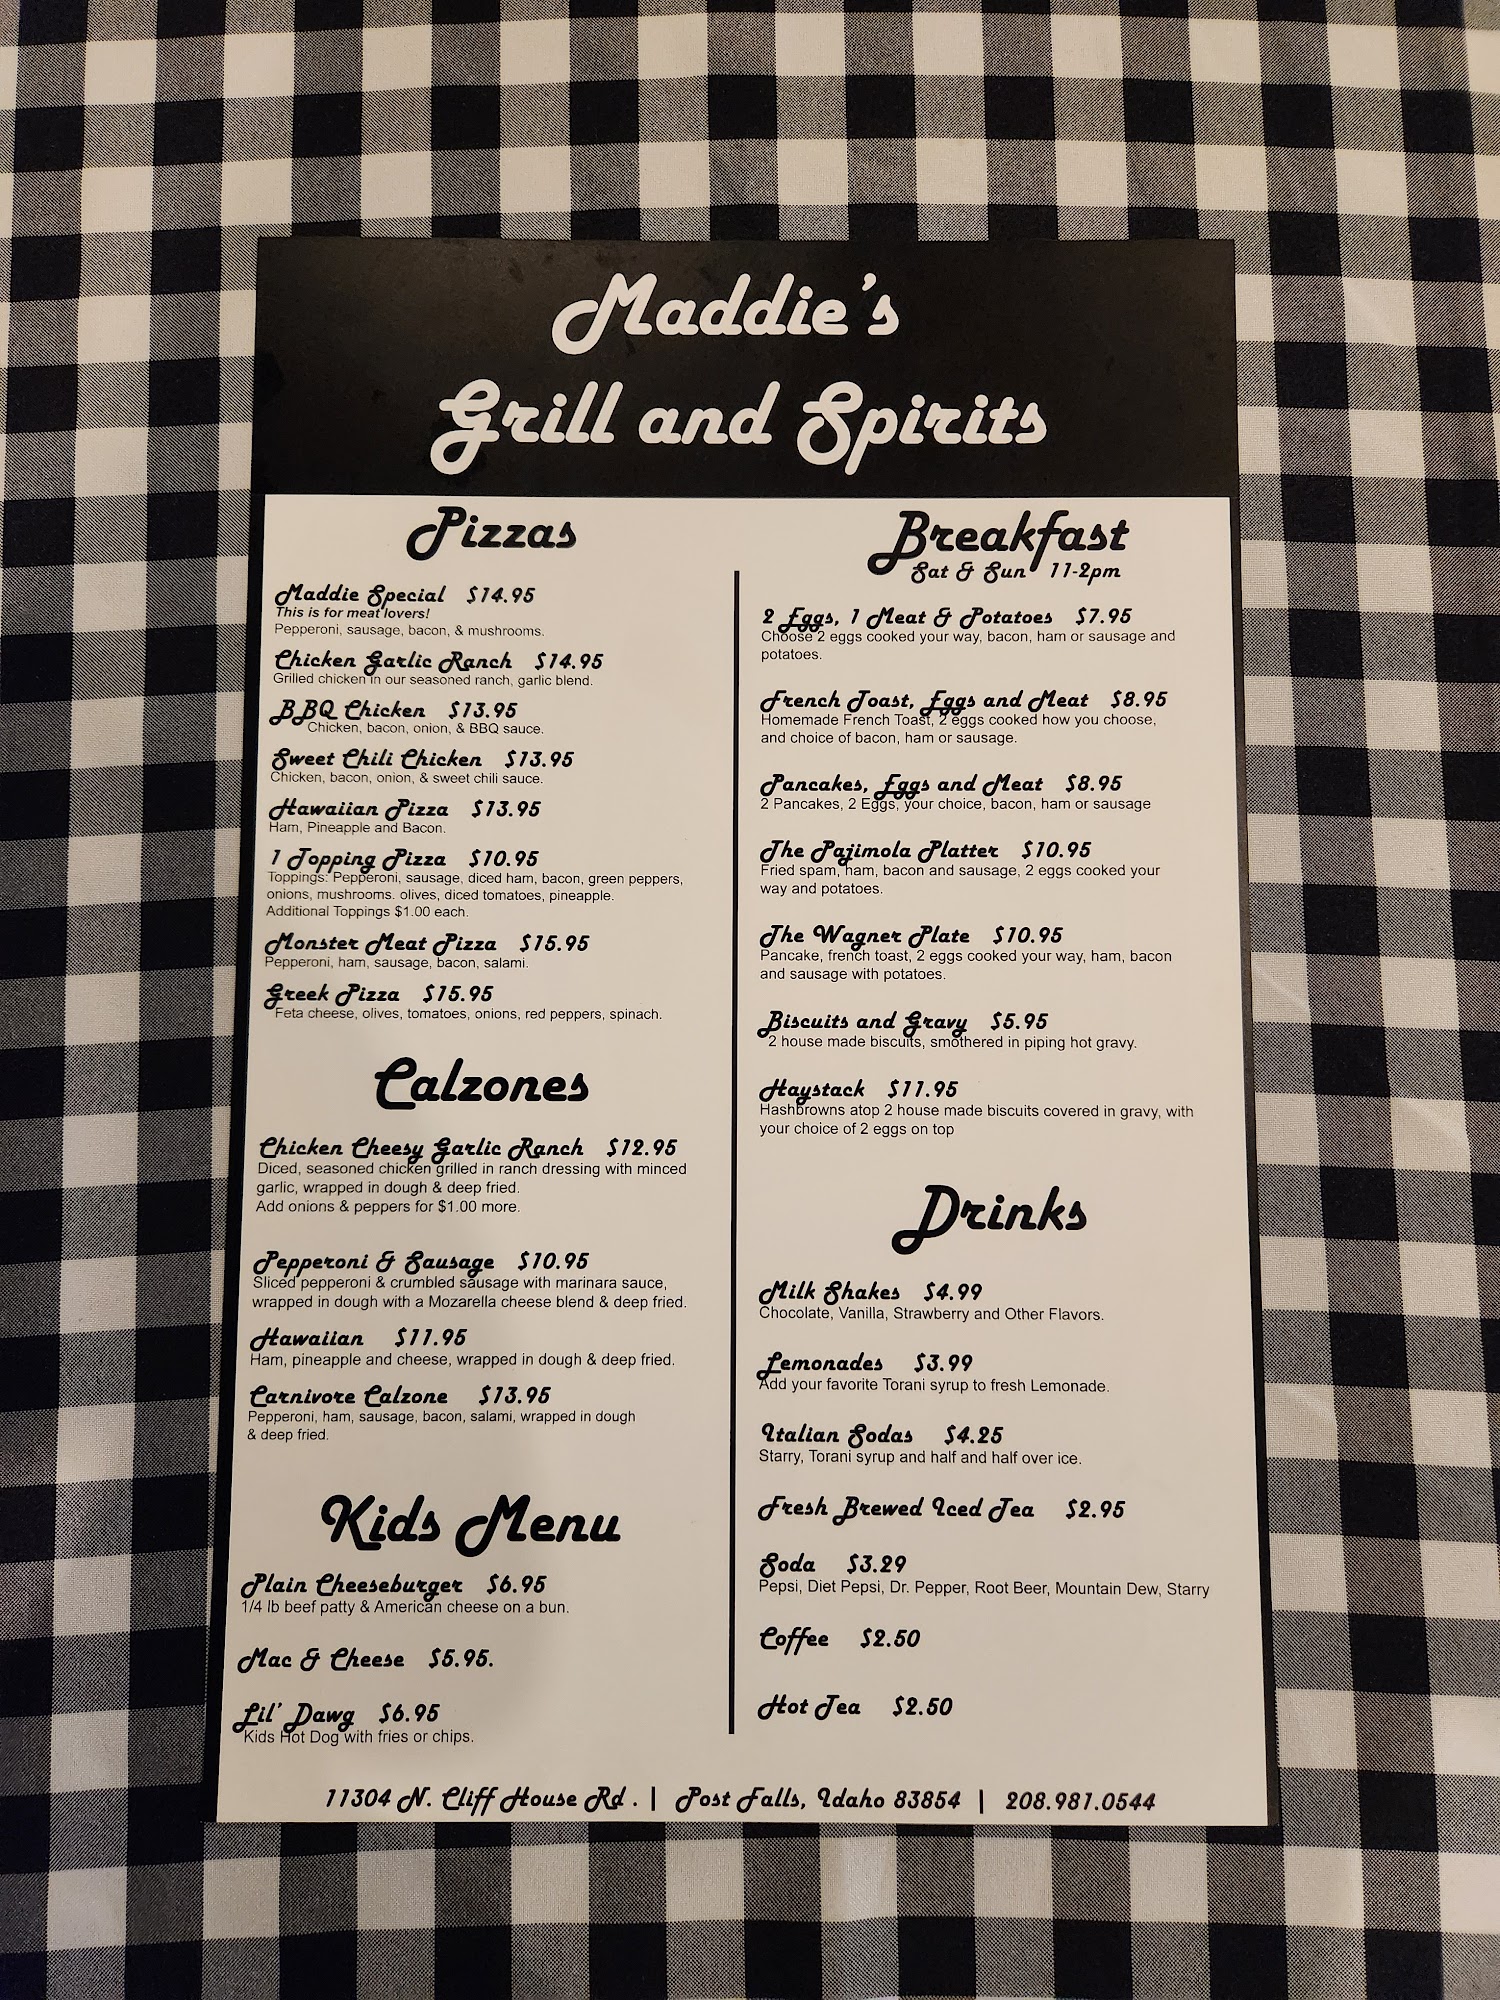 Maddie's
Grill and Spirits
Pizzas
Maddie Special $14.95
This is for meat lovers!
Pepperoni, sausage, bacon, & mushrooms.
Chicken Garlic Ranch $14.95
Grilled chicken in our seasoned ranch, garlic blend.
BBQ Chicken $13.95
Chicken, bacon, onion, & BBQ sauce.
Sweet Chili Chicken $13.95
Chicken, bacon, onion, & sweet chili sauce.
Hawaiian Pizza $13.95
Ham, Pineapple and Bacon.
1 Topping Pizza $10.95
Toppings: Pepperoni, sausage, diced ham, bacon, green peppers,
onions, mushrooms. olives, diced tomatoes, pineapple.
Additional Toppings $1.00 each.
Monster Meat Pizza $15.95
Pepperoni, ham, sausage, bacon, salami.
Greek Pizza $15.95
Feta cheese, olives, tomatoes, onions, red peppers, spinach.
Calzones
Chicken Cheesy Garlic Ranch $12.95
Diced, seasoned chicken grilled in ranch dressing with minced
garlic, wrapped in dough & deep fried.
Add onions & peppers for $1.00 more.
Pepperoni & Sausage $10.95
Sliced pepperoni & crumbled sausage with marinara sauce,
wrapped in dough with a Mozarella cheese blend & deep fried.
Hawaiian $11.95
Ham, pineapple and cheese, wrapped in dough & deep fried.
Carnivore Calzone $13.95
Pepperoni, ham, sausage, bacon, salami, wrapped in dough
& deep fried.
Kids Menu
Plain Cheeseburger $6.95
1/4 lb beef patty & American cheese on a bun.
Mac & Cheese $5.95.
Lil' Dawg $6.95
Kids Hot Dog with fries or chips.
Breakfast
Sat & Sun 11-2pm
2 Eggs, 1 Meat & Potatoes $7.95
Choose 2 eggs cooked your way, bacon, ham or sausage and
potatoes.
French Toast, Eggs and Meat $8.95
Homemade French Toast, 2 eggs cooked how you choose,
and choice of bacon, ham or sausage.
Pancakes, Eggs and Meat $8.95
2 Pancakes, 2 Eggs, your choice, bacon, ham or sausage
The Pajimola Platter $10.95
Fried spam, ham, bacon and sausage, 2 eggs cooked your
way and potatoes.
The Wagner Plate $10.95
Pancake, french toast, 2 eggs cooked your way, ham, bacon
and sausage with potatoes.
Biscuits and Gravy $5.95
2 house made biscuits, smothered in piping hot gravy.
Haystack $11.95
Hashbrowns atop 2 house made biscuits covered in gravy, with
your choice of 2 eggs on top
Drinks
Milk Shakes $4.99
Chocolate, Vanilla, Strawberry and Other Flavors.
Lemonades $3.99
Add your favorite Torani syrup to fresh Lemonade.
Italian Sodas $4.25
Starry, Torani syrup and half and half over ice.
Fresh Brewed Iced Tea $2.95
Soda $3.29
Pepsi, Diet Pepsi, Dr. Pepper, Root Beer, Mountain Dew, Starry
Coffee $2.50
Hot Tea $2.50
11304 N. Cliff House Rd . | Post Falls, Idaho 83854 | 208.981.0544